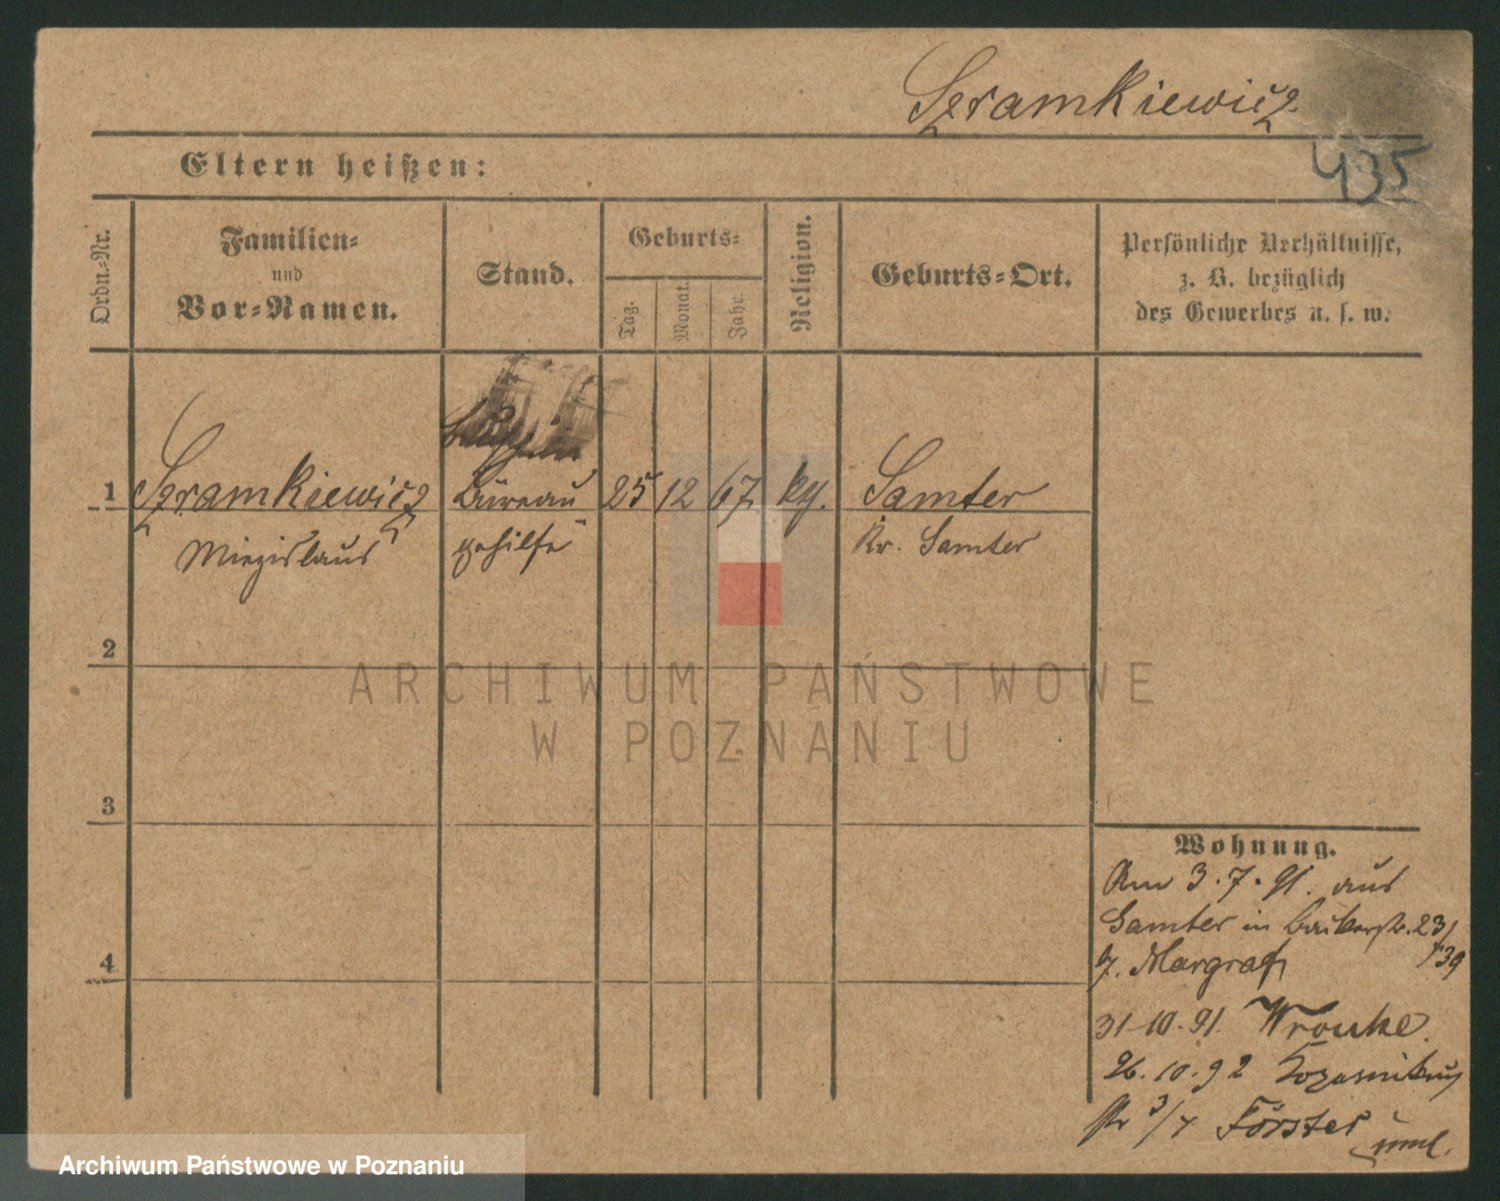 Szramkiewicz
435
Eltern heißen:
Ordn.-Nr.
Familien-
und
Vor-Namen.
Stand.
Geburts-
Tag.
Monat.
Jahr.
Religion.
Geburts-Ort.
Persönliche Verhältnisse,
z. B. bezüglich
des Gewerbes u. s. w.
1 Szramkiewicz Büreau 25 12 67 kg. Samter
Miezislaus gehilfe Kr. Samter
2
3
4
Wohnung.
Am 3.7.91. aus
Samter in 23/
39
b/. Margraf
31-10.91. Wronke.
26.10.92
str 3/4 Förster
ARCHIWUM PAŃSTWOWE
W POZNANIU
Archiwum Państwowe w Poznaniu